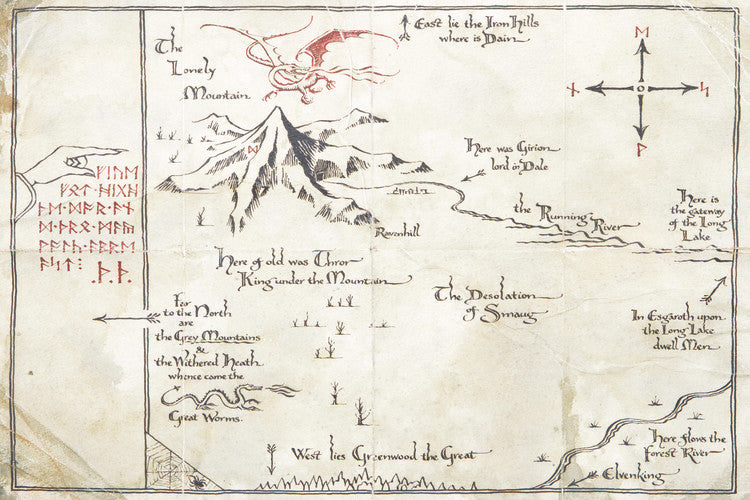 East lie the Iron Hills
where is Dain
The
Lonely
Mountain
ᛖ
ᚾ
ᛋ
ᚹ
ᛞ
Here was Girion
lord in Dale
Ravenhill
the Running River
Here is
the gateway
of the Long
Lake
ᚠᛁᚢᛖ
Here of old was Thror
King under the Mountain
The Desolation
of Smaug
Far
to the North
are
the Grey Mountains
&
the Withered Heath
whence came the
Great Worms.
In Esgaroth upon
the Long Lake
dwell Men
West lies Greenwood the Great
Here flows the
Forest River
Elvenking